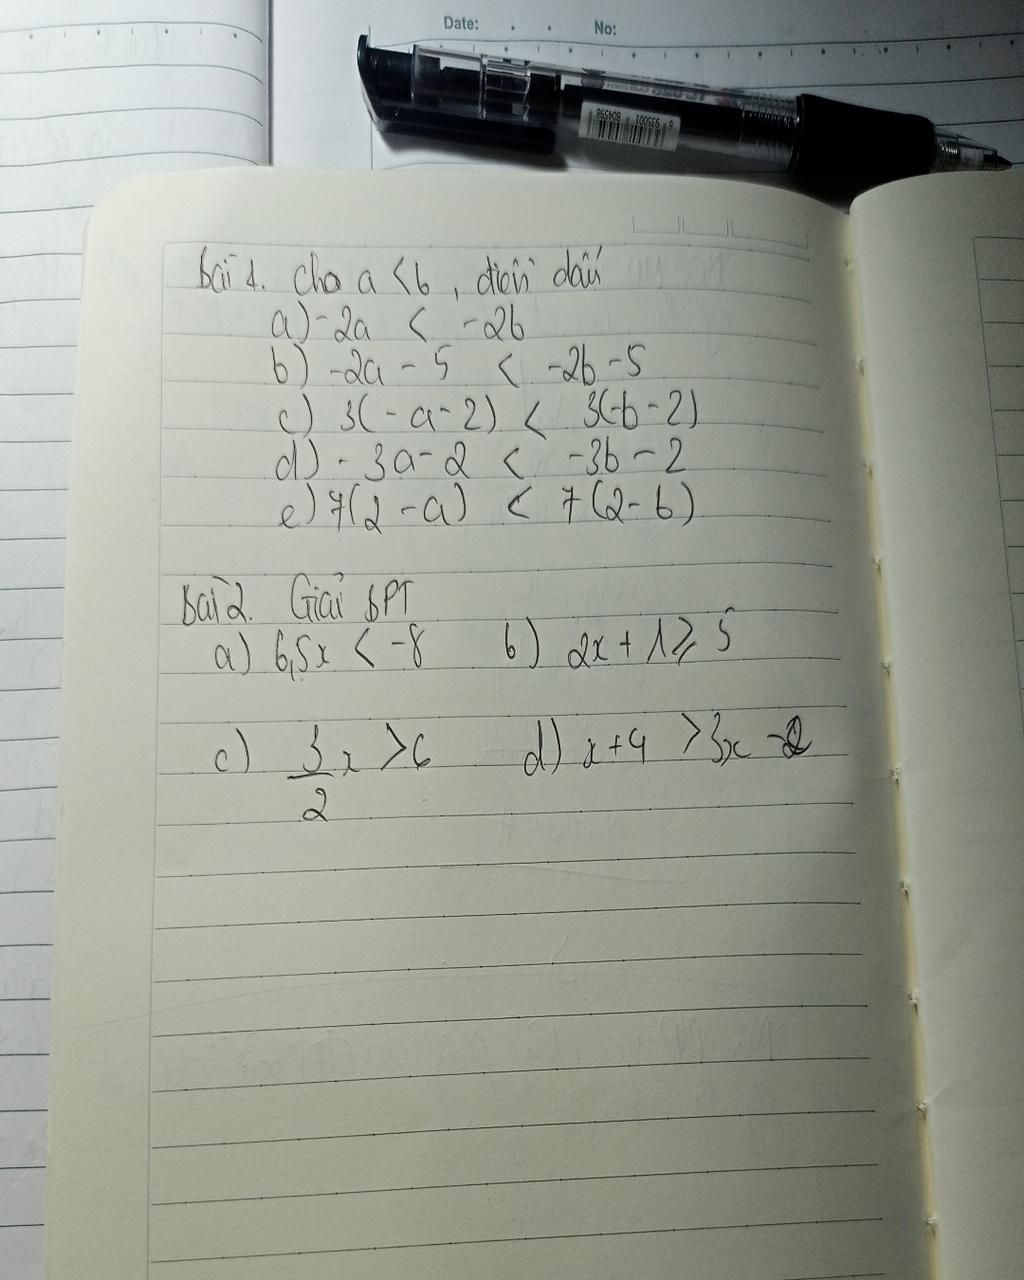 Date:
No:
8 935001 804598
Bài 1. Cho a < b, điền dấu
a) -2a < -2b
b) -2a - 5 < -2b - 5
c) 3(-a - 2) < 3(-b - 2)
d) - 3a - 2 < -3b - 2
e) 7(2 - a) < 7(2 - b)
Bài 2. Giải BPT
a) 6,5x < -8 b) 2x + 1 ⩾ 5
c) 3/2 x > 6 d) x + 4 > 3x - 2